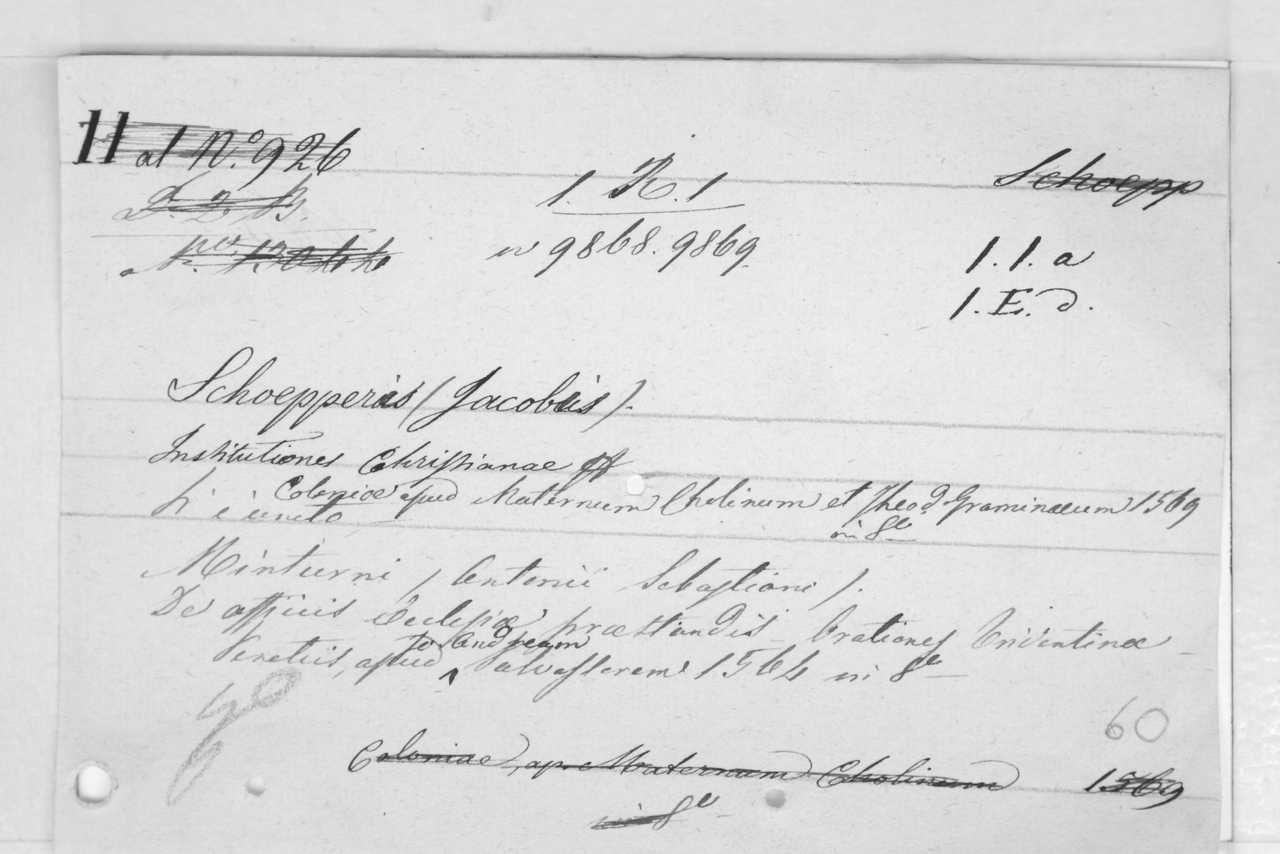 11 al N.o 926
1. R. 1
Schoepp
D. 2 B.
w 9868. 9869.
1. 1. a
1. E. d.
Schoepperis (Jacobis).
Institutiones Christianae
Coloniae apud Maternum Cholinum et Theod Graminaeum 1569
in 8e
Minturni (Antonii Sebastiani).
De officiis Ecclesiae praestandis Orationes Tridentinae
to Andream
Venetiis, apud Valvassorem 1564 in 8e
60
Coloniae, ap. Maternum Cholinum 1569
in 8e